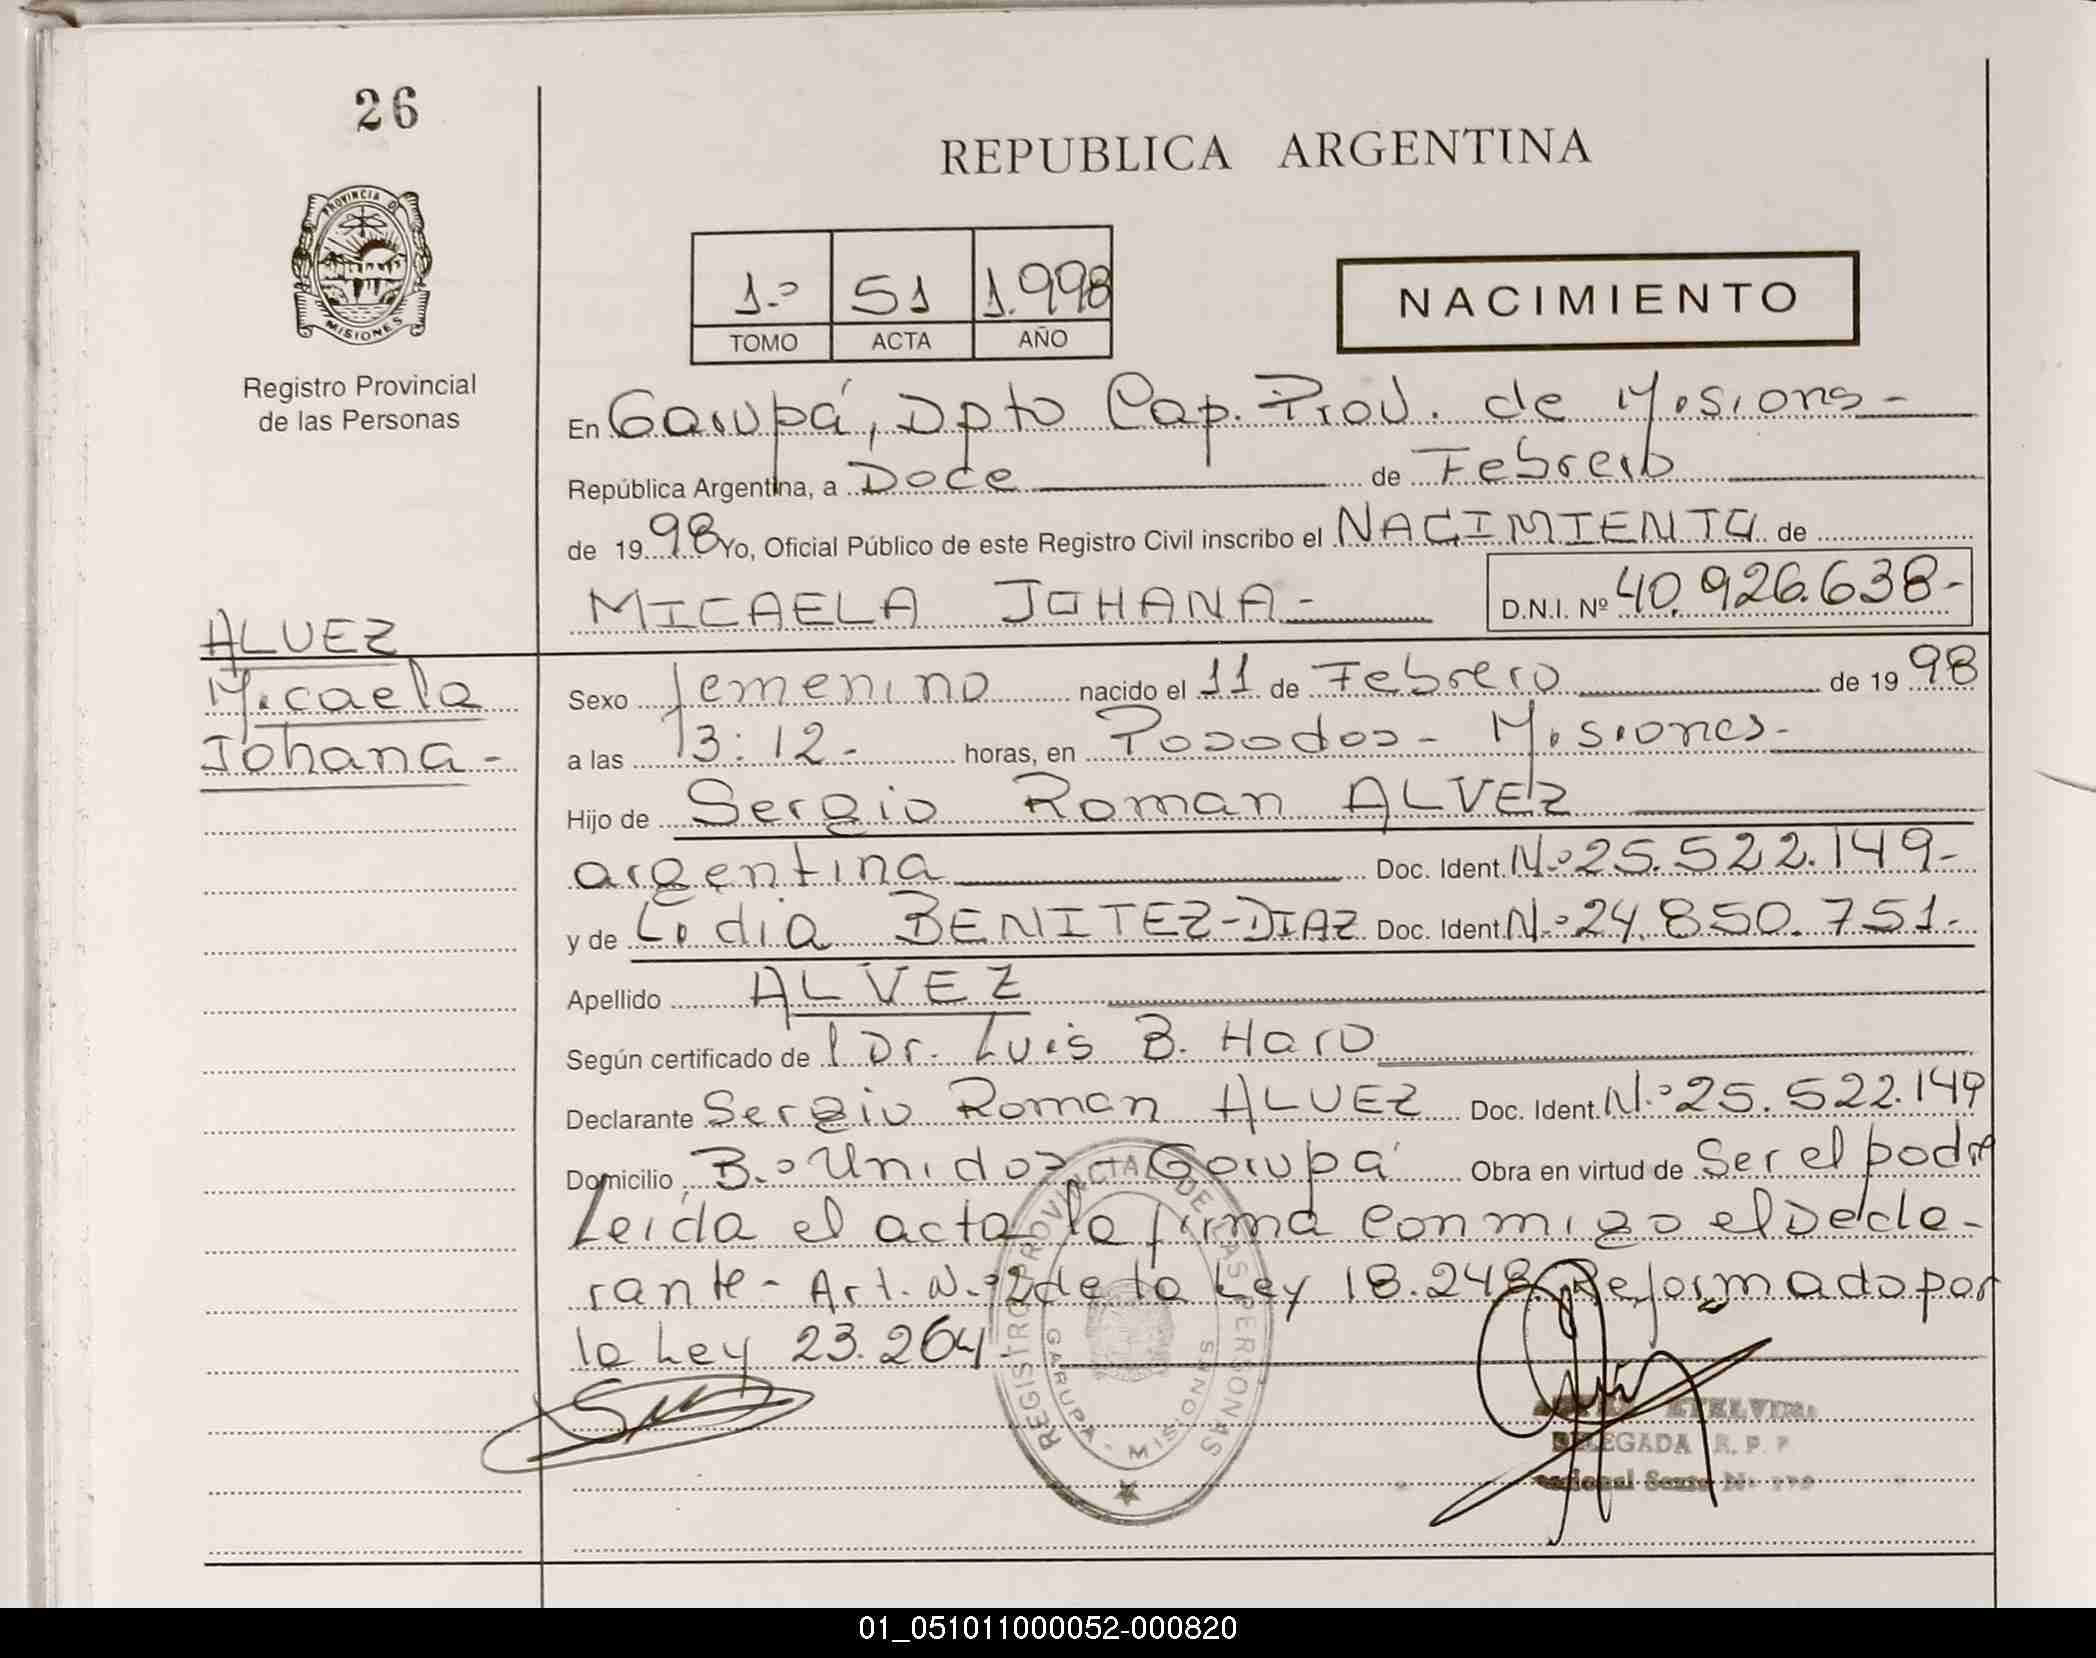 26
REPUBLICA ARGENTINA
PROVINCIA DE
MISIONES
Registro Provincial
de las Personas
1.º 51 1.998
TOMO ACTA AÑO
NACIMIENTO
En Garupá, Dpto Cap. Prov. de Misions -
República Argentina, a Doce de Febrero
de 1998 Yo, Oficial Público de este Registro Civil inscribo el NACIMIENTO de
MICAELA JOHANA - D.N.I. Nº 40.926.638 -
ALVEZ
Micaela
Johana -
Sexo femenino nacido el 11 de Febrero de 1998
a las 13:12 - horas, en Posadas - Misiones -
Hijo de Sergio Roman ALVEZ
argentina Doc. Ident. N.º 25.522.149 -
y de Lidia BENITEZ-DIAZ Doc. Ident N.º 24.850.751 -
Apellido ALVEZ
Según certificado de l Dr. Luis B. Haro
Declarante Sergio Roman ALVEZ Doc. Ident. N.º 25.522.149
Domicilio B.º Unidos - Garupá Obra en virtud de Ser el padre
Leida el acta la firma conmigo el Decla-
rante - Art. N.º 2 de la Ley 18.248 Reformado por
la Ley 23.264 -
REGISTRO PROVINCIAL DE LAS PERSONAS
GARUPA - MISIONES
ETELVINA
DELEGADA R. P. P.
01_051011000052-000820